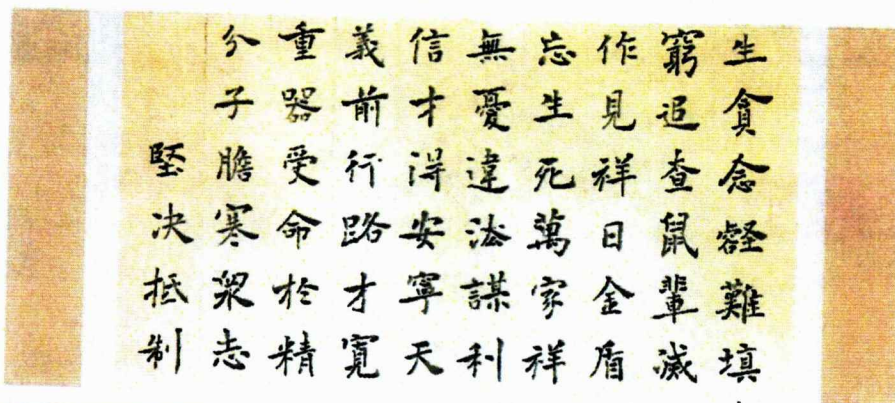 生貪念壑難填
窮追查鼠輩滅
作見祥日金盾
忘生死萬家祥
無憂違法謀利
信才得安寧天
義前行路才寬
重器受命於精
分子膽寒眾志
堅决抵制